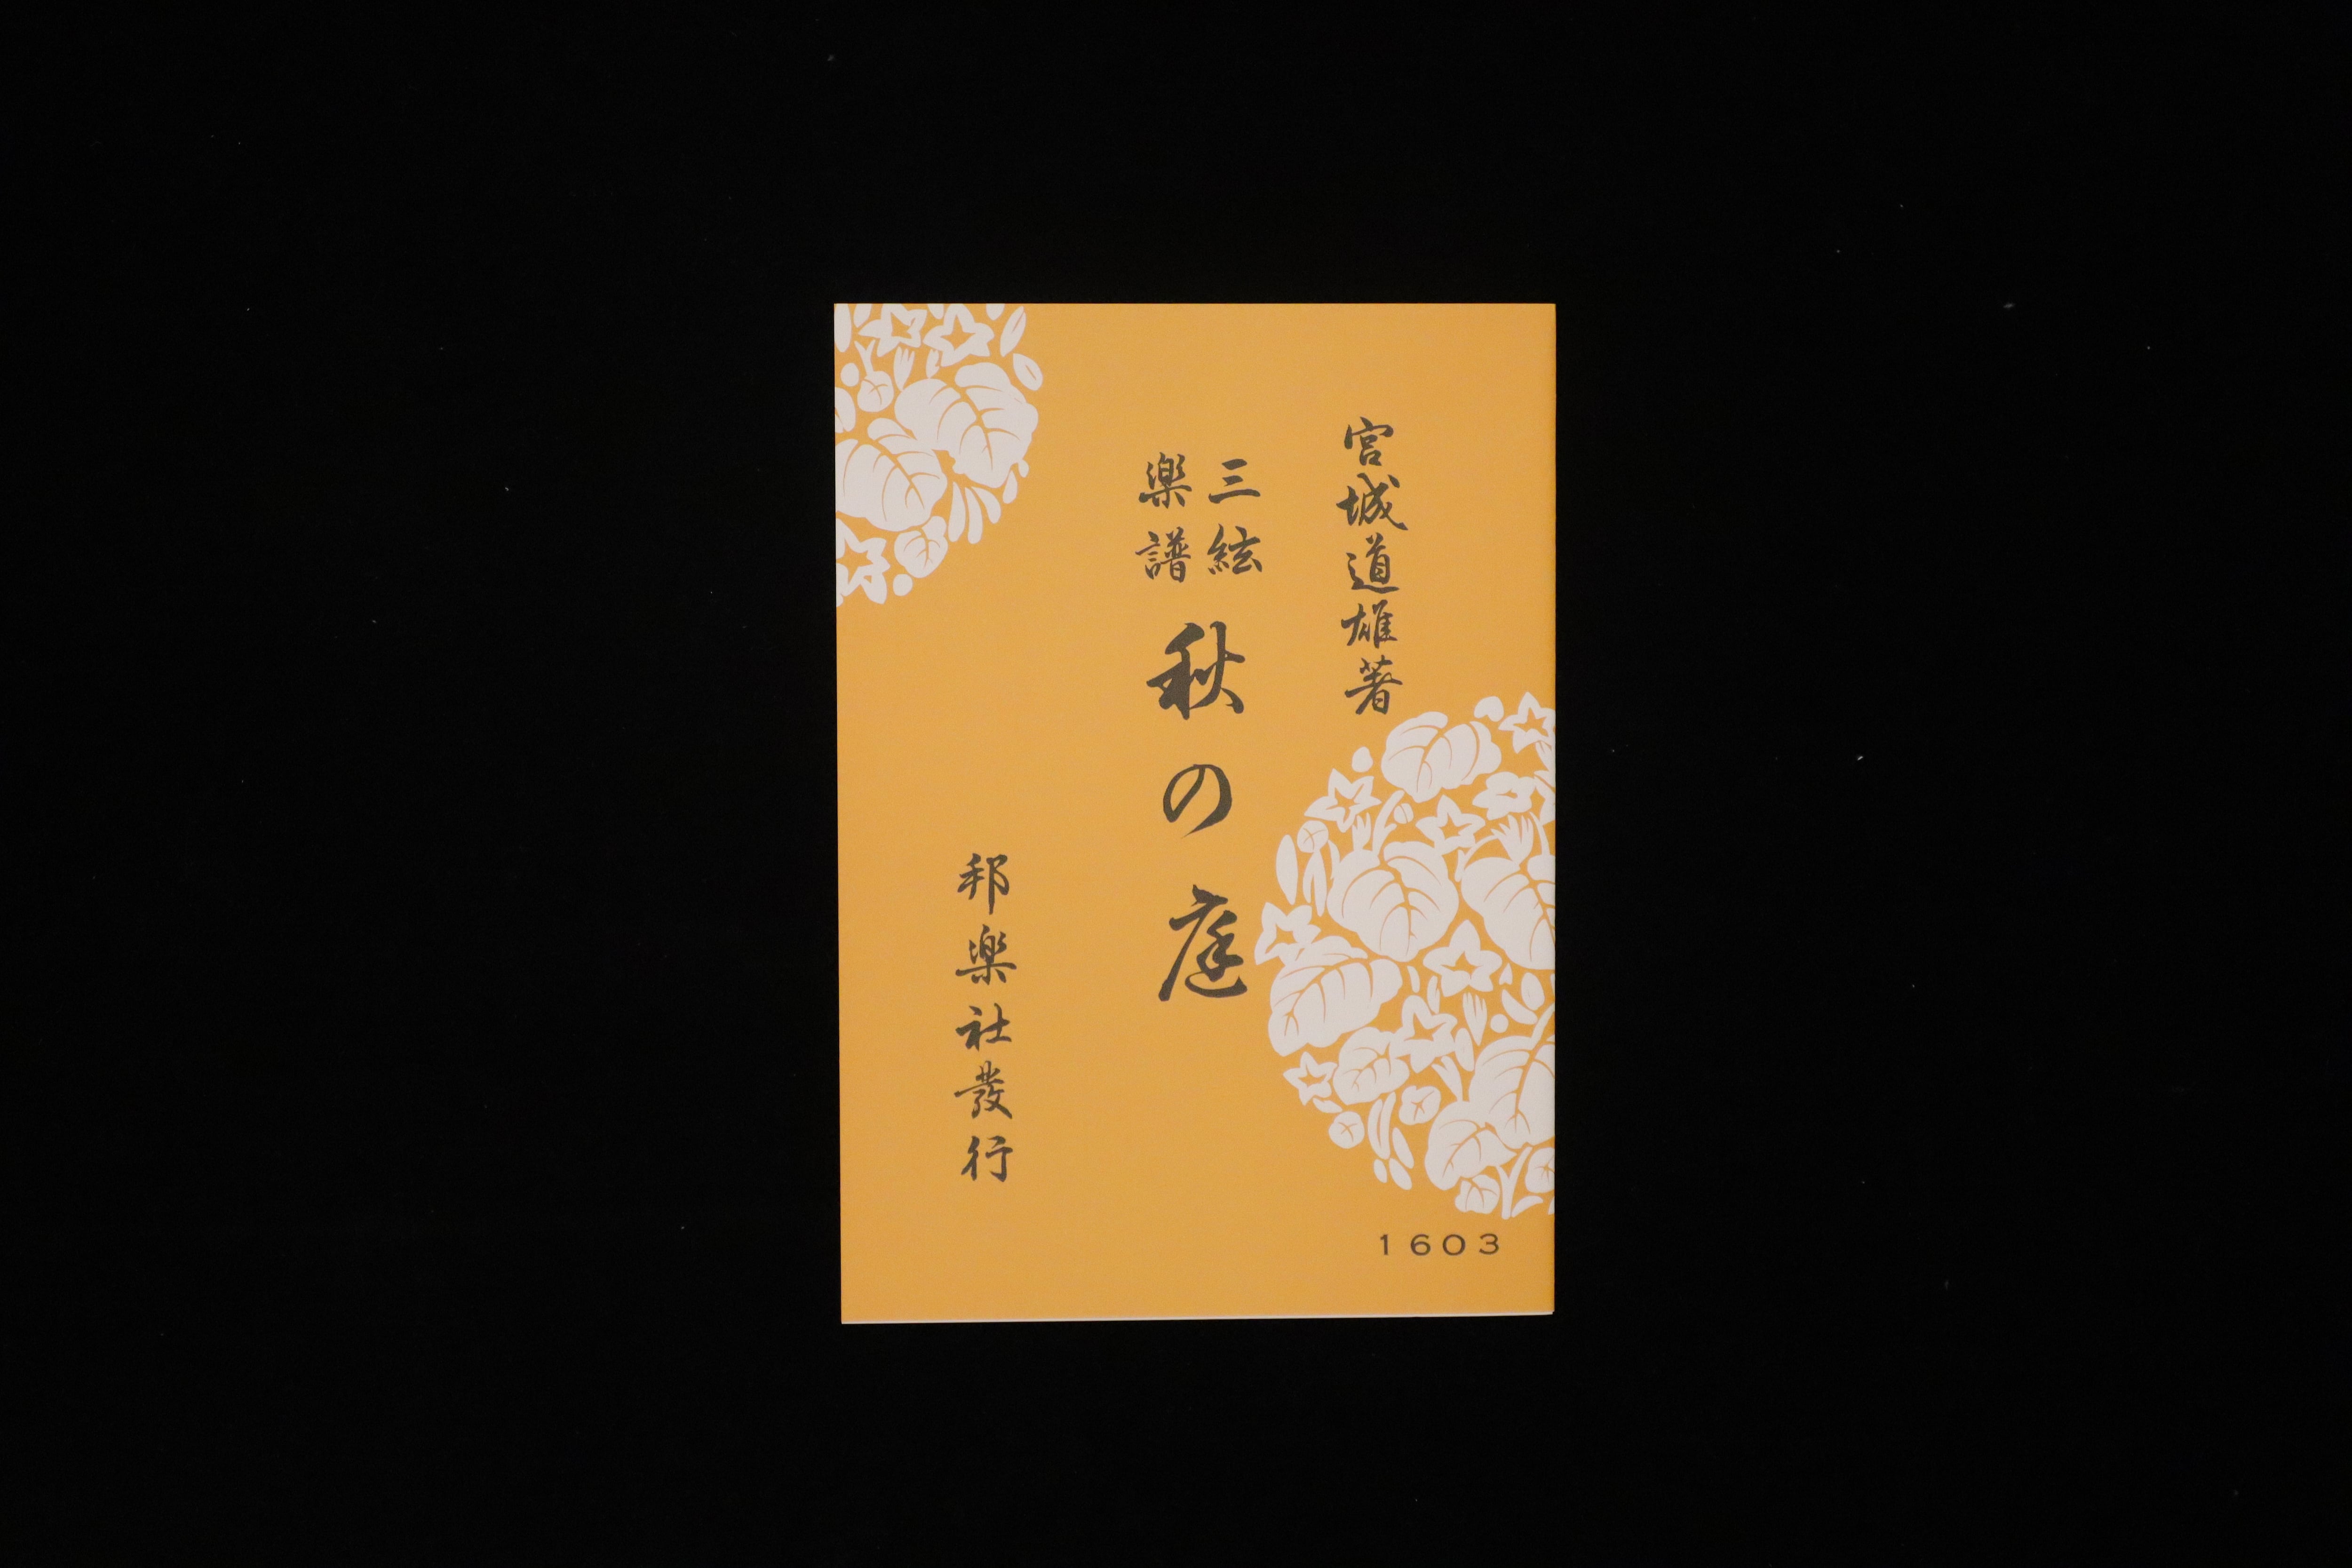 宮城道雄著
三絃
楽譜
秋の庭
邦楽社發行
1603